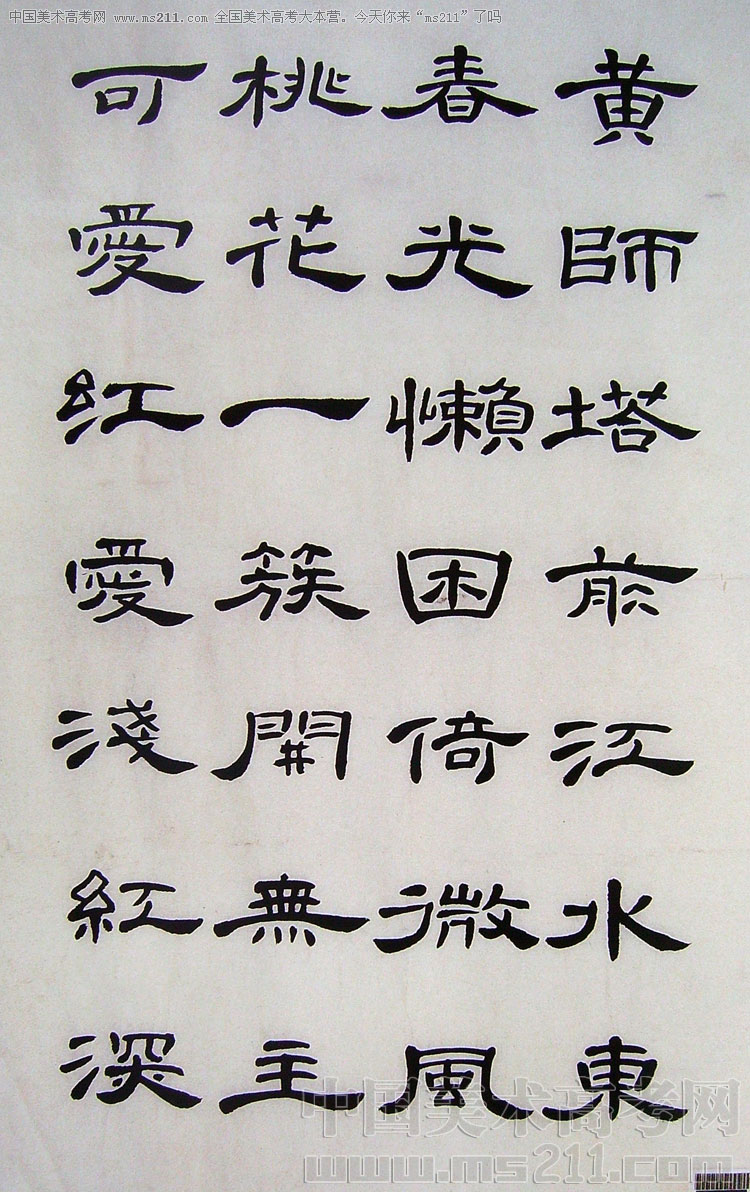 中国美术高考网 www.ms211.com 全国美术高考大本营。今天你来“ms211”了吗
黄師塔前江水東
春光懶困倚微風
桃花一簇開無主
可愛红愛淺紅深
中国美术高考网
www.ms211.com